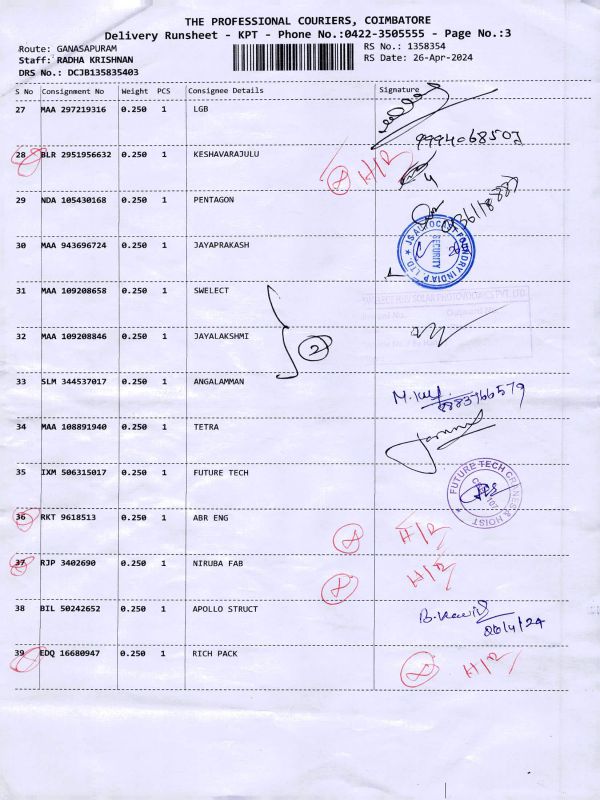 THE PROFESSIONAL COURIERS, COIMBATORE
Delivery Runsheet - KPT - Phone No.:0422-3505555 - Page No.:3
Route: GANASAPURAM RS No.: 1358354
Staff: RADHA KRISHNAN RS Date: 26-Apr-2024
DRS No.: DCJB135835403
S No Consignment No Weight PCS Consignee Details Signature
27 MAA 297219316 0.250 1 LGB
28 BLR 2951956632 0.250 1 KESHAVARAJULU H/R
29 NDA 105430168 0.250 1 PENTAGON
30 MAA 943696724 0.250 1 JAYAPRAKASH
SECURITY
31 MAA 109208658 0.250 1 SWELECT
32 MAA 109208846 0.250 1 JAYALAKSHMI
2
33 SLM 344537017 0.250 1 ANGALAMMAN
34 MAA 108891940 0.250 1 TETRA
35 IXM 506315017 0.250 1 FUTURE TECH
FUTURE TECH CRANES & HOIST
36 RKT 9618513 0.250 1 ABR ENG H/R
37 RJP 3402690 0.250 1 NIRUBA FAB H/R
38 BIL 50242652 0.250 1 APOLLO STRUCT
26/4/24
39 EDQ 16680947 0.250 1 RICH PACK H/R